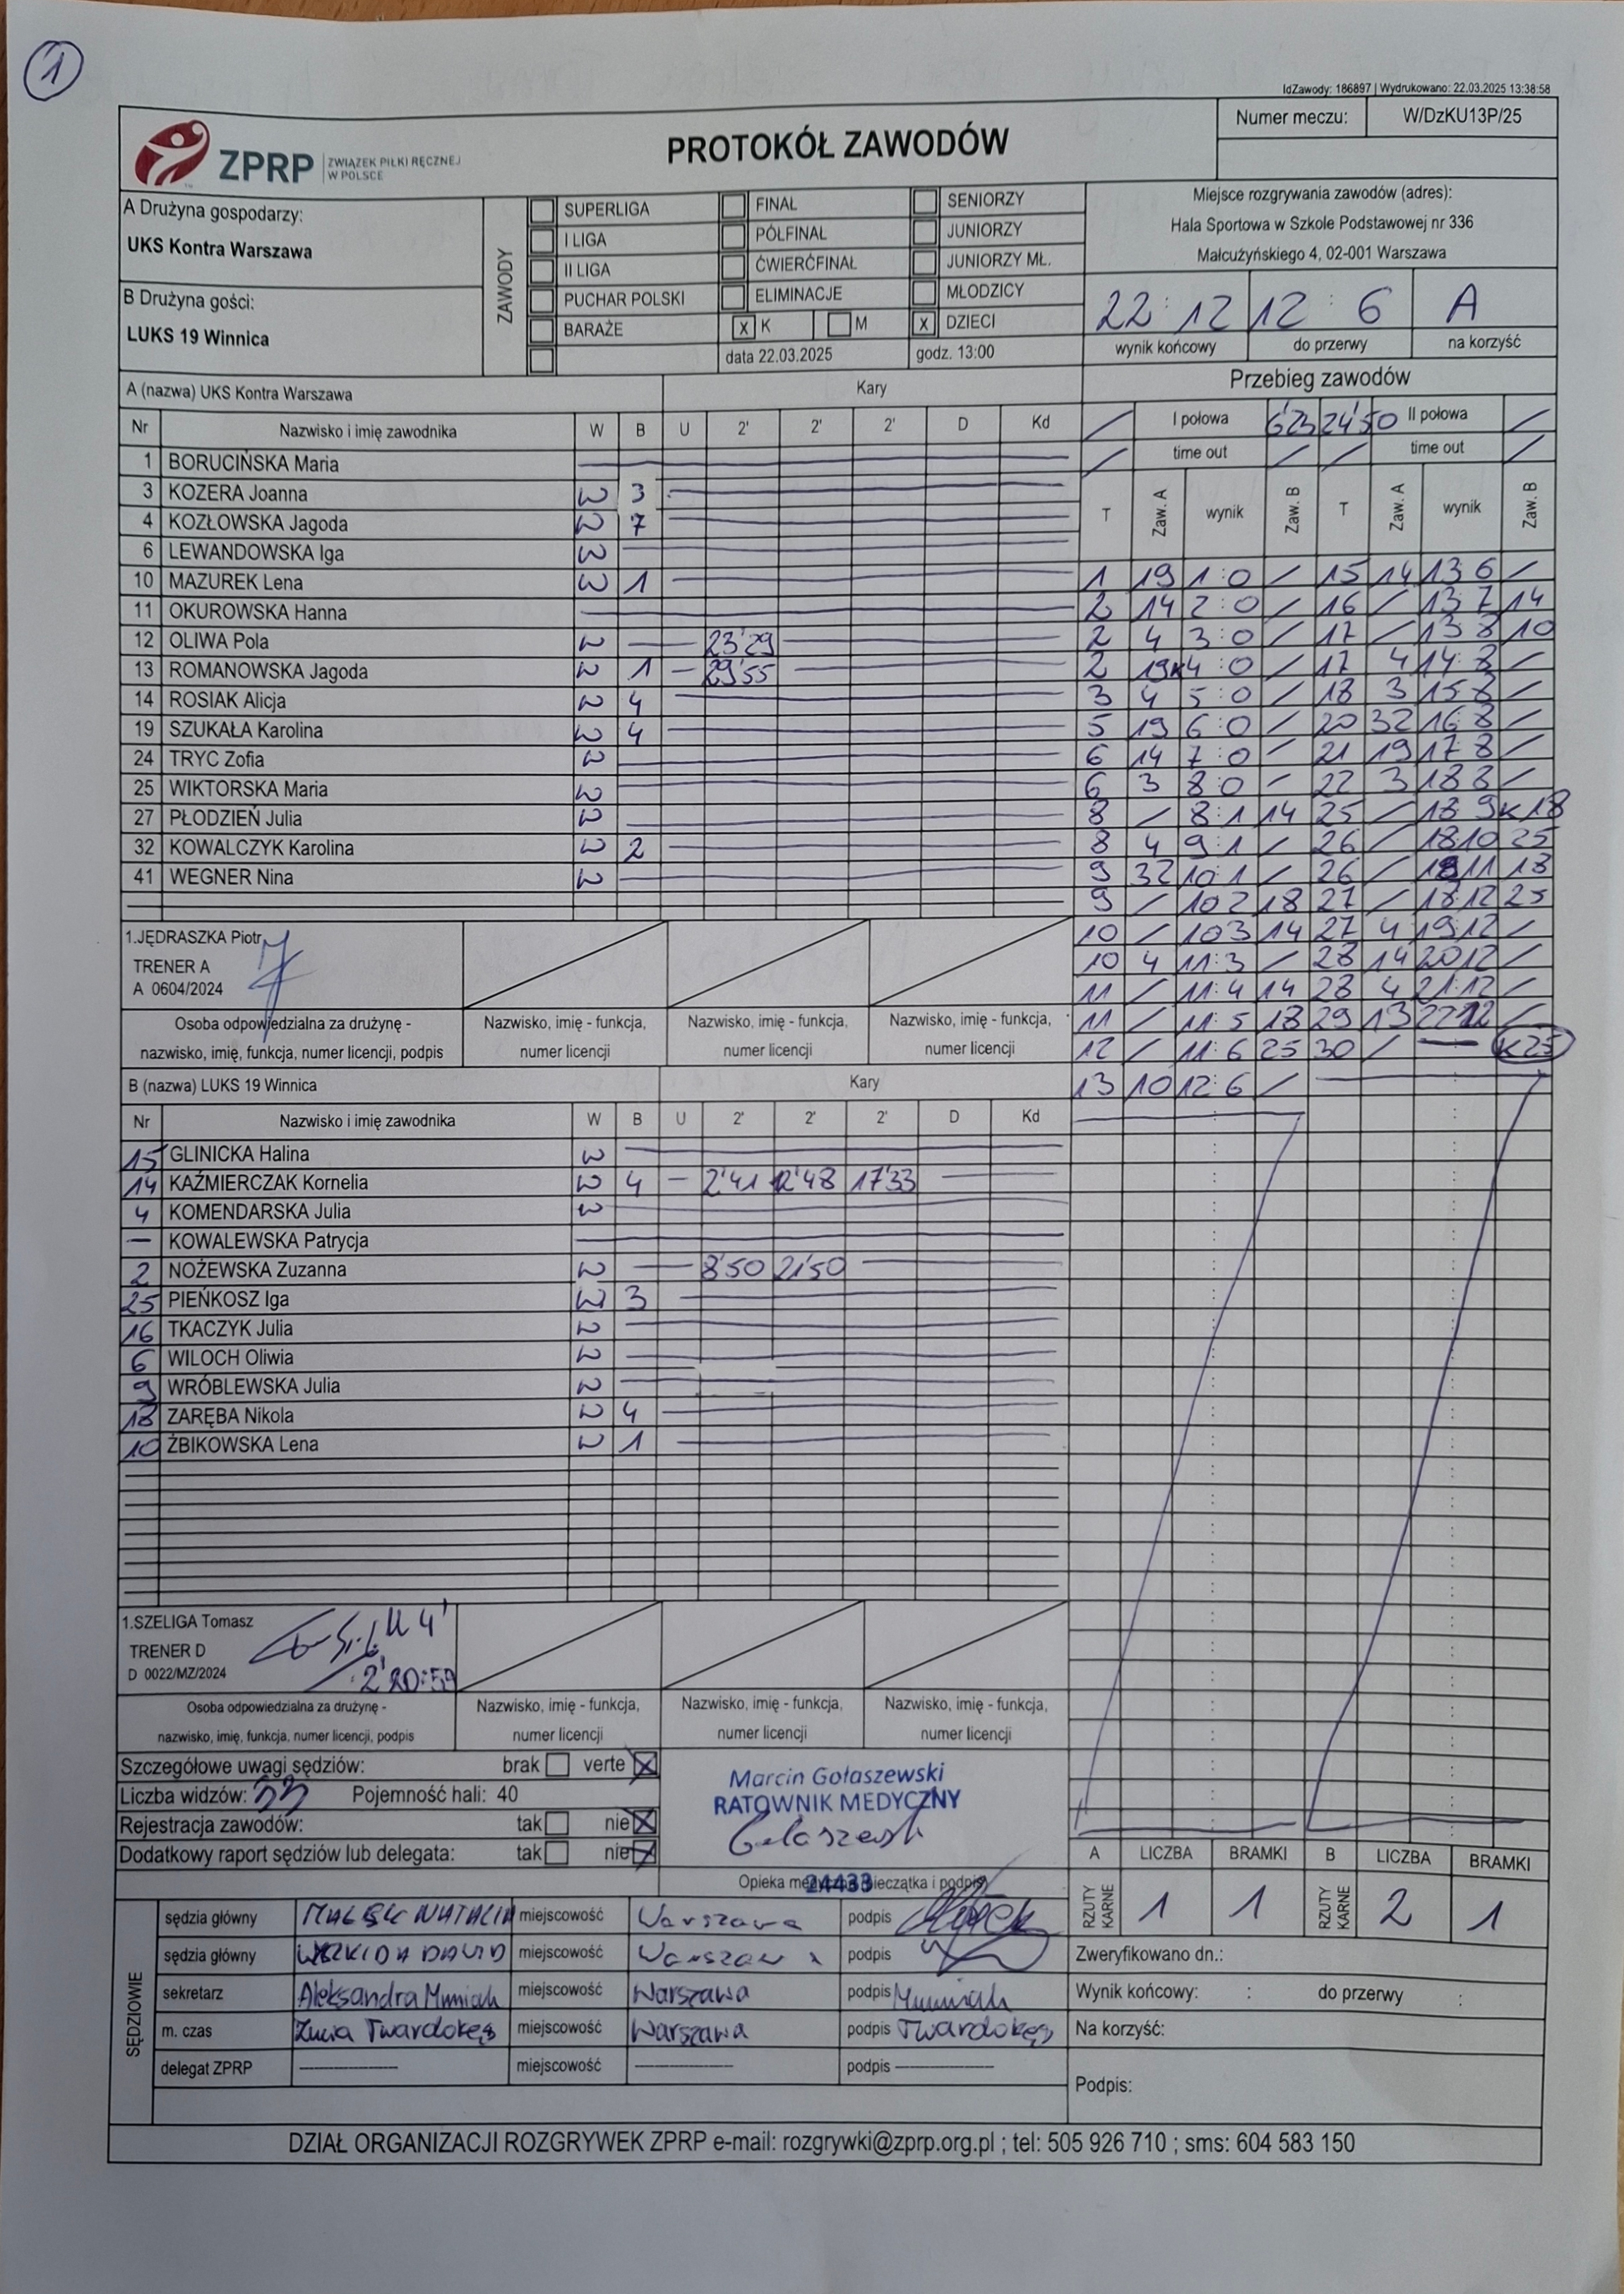 1
IdZawody: 186897 | Wydrukowano: 22.03.2025 13:38:58
ZPRP ZWIĄZEK PIŁKI RĘCZNEJ W POLSCE
PROTOKÓŁ ZAWODÓW
Numer meczu: W/DzKU13P/25
A Drużyna gospodarzy:
UKS Kontra Warszawa
B Drużyna gości:
LUKS 19 Winnica
ZAWODY
SUPERLIGA FINAŁ SENIORZY
I LIGA PÓŁFINAŁ JUNIORZY
II LIGA ĆWIERĆFINAŁ JUNIORZY MŁ.
PUCHAR POLSKI ELIMINACJE MŁODZICY
BARAŻE x K M x DZIECI
data 22.03.2025 godz. 13:00
Miejsce rozgrywania zawodów (adres):
Hala Sportowa w Szkole Podstawowej nr 336
Małcużyńskiego 4, 02-001 Warszawa
22 : 12 12 : 6 A
wynik końcowy do przerwy na korzyść
A (nazwa) UKS Kontra Warszawa Kary
Nr Nazwisko i imię zawodnika W B U 2' 2' 2' D Kd
1 BORUCIŃSKA Maria
3 KOZERA Joanna W 3
4 KOZŁOWSKA Jagoda W 7
6 LEWANDOWSKA Iga W
10 MAZUREK Lena W 1
11 OKUROWSKA Hanna
12 OLIWA Pola W 23'29
13 ROMANOWSKA Jagoda W 1 - 29'55
14 ROSIAK Alicja W 4
19 SZUKAŁA Karolina W 4
24 TRYC Zofia W
25 WIKTORSKA Maria W
27 PŁODZIEŃ Julia W
32 KOWALCZYK Karolina W 2
41 WEGNER Nina W
1.JĘDRASZKA Piotr
TRENER A
A 0604/2024
Osoba odpowiedzialna za drużynę - nazwisko, imię, funkcja, numer licencji, podpis
Nazwisko, imię - funkcja, numer licencji
Nazwisko, imię - funkcja, numer licencji
Nazwisko, imię - funkcja, numer licencji
B (nazwa) LUKS 19 Winnica Kary
Nr Nazwisko i imię zawodnika W B U 2' 2' 2' D Kd
15 GLINICKA Halina W
14 KAŹMIERCZAK Kornelia W 4 - 2'41 12'48 17'33
4 KOMENDARSKA Julia W
— KOWALEWSKA Patrycja
2 NOŻEWSKA Zuzanna W 8'50 21'50
25 PIEŃKOSZ Iga W 3
16 TKACZYK Julia W
6 WILOCH Oliwia W
9 WRÓBLEWSKA Julia W
18 ZARĘBA Nikola W 4
10 ŻBIKOWSKA Lena W 1
1.SZELIGA Tomasz
TRENER D
D 0022/MZ/2024
2' 20:59
Osoba odpowiedzialna za drużynę - nazwisko, imię, funkcja, numer licencji, podpis
Nazwisko, imię - funkcja, numer licencji
Nazwisko, imię - funkcja, numer licencji
Nazwisko, imię - funkcja, numer licencji
Przebieg zawodów
/ I połowa 6'23 24'50 II połowa /
/ time out / / time out /
T Zaw. A wynik Zaw. B T Zaw. A wynik Zaw. B
1 19 1:0 / 15 14 13 6 /
2 14 2:0 / 16 / 13 7 14
2 4 3:0 / 17 / 13 8 10
2 19k 4:0 / 17 4 14 8 /
3 4 5:0 / 18 3 15 8 /
5 19 6:0 / 20 32 16 8 /
6 14 7:0 - 21 19 17 8 /
6 3 8:0 - 22 3 18 8 /
8 / 8:1 14 25 / 18 9 k18
8 4 9:1 / 26 / 18:10 25
9 32 10:1 / 26 / 18 11 18
9 / 10 2 18 27 / 18:12 25
10 / 10 3 14 27 4 19 12 /
10 4 11:3 / 28 14 20 12 /
11 / 11:4 14 28 4 21:12 /
11 / 11:5 18 29 13 22 12 /
12 / 11:6 25 30 / — k25
13 10 12:6 /
Szczegółowe uwagi sędziów: brak verte X
Liczba widzów: 33 Pojemność hali: 40
Rejestracja zawodów: tak nie X
Dodatkowy raport sędziów lub delegata: tak nie X
Marcin Gołaszewski
RATOWNIK MEDYCZNY
24433
A LICZBA BRAMKI B LICZBA BRAMKI
RZUTY KARNE 1 1 RZUTY KARNE 2 1
SĘDZIOWIE
sędzia główny NATALIA miejscowość Warszawa podpis
sędzia główny DAWID miejscowość Warszawa podpis
sekretarz Aleksandra miejscowość Warszawa podpis
m. czas Twardokęs miejscowość Warszawa podpis Twardokęs
delegat ZPRP miejscowość podpis
Zweryfikowano dn.:
Wynik końcowy: : do przerwy :
Na korzyść:
Podpis:
DZIAŁ ORGANIZACJI ROZGRYWEK ZPRP e-mail: rozgrywki@zprp.org.pl ; tel: 505 926 710 ; sms: 604 583 150